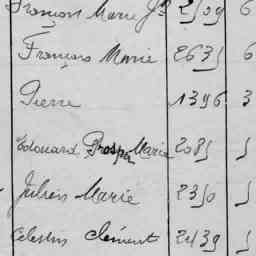 François Marie Jh 2109 6
François Marie 2635 6
Pierre 1396 3
Edouard Prosper Marie 2085 5
Julien Marie 2350 5
Célestin Clément 2439 5